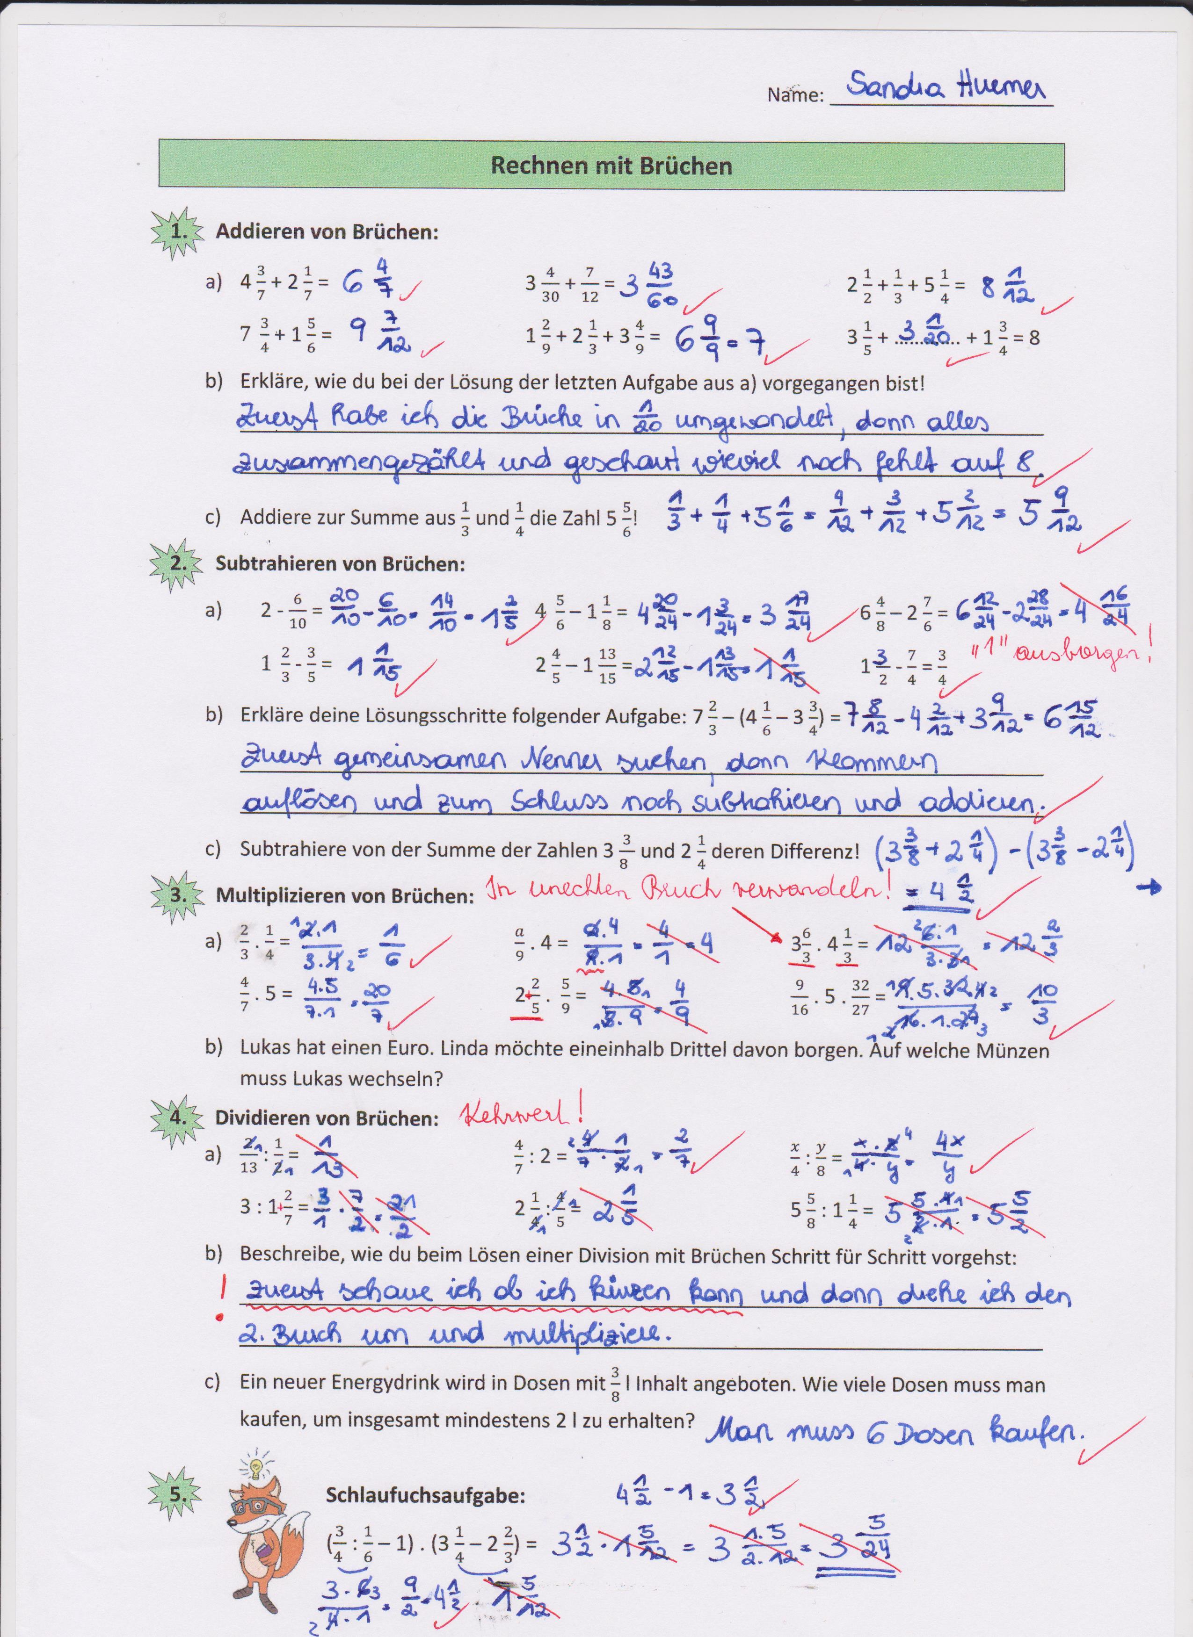 Name: Sandra Huemer
Rechnen mit Brüchen
1. Addieren von Brüchen:
a) 4 3/7 + 2 1/7 = 6 4/7   3 4/30 + 7/12 = 3 43/60   2 1/2 + 1/3 + 5 1/4 = 8 1/12
7 3/4 + 1 5/6 = 9 7/12   1 2/9 + 2 1/3 + 3 4/9 = 6 9/9 = 7   3 1/5 + ...3 1/20... + 1 3/4 = 8
b) Erkläre, wie du bei der Lösung der letzten Aufgabe aus a) vorgegangen bist!
Zuerst habe ich die Brüche in 1/20 umgewandelt, dann alles
zusammengezählt und geschaut wieviel noch fehlt auf 8.
c) Addiere zur Summe aus 1/3 und 1/4 die Zahl 5 5/6! 1/3 + 1/4 + 5 1/6 = 4/12 + 3/12 + 5 2/12 = 5 9/12
2. Subtrahieren von Brüchen:
a) 2 - 6/10 = 20/10 - 6/10 = 14/10 = 1 2/5   4 5/6 - 1 1/8 = 4 20/24 - 1 3/24 = 3 17/24   6 4/8 - 2 7/6 = 6 12/24 - 2 28/24 = 4 16/24
"1" ausborgen!
1 2/3 - 3/5 = 1 1/15   2 4/5 - 1 13/15 = 2 12/15 - 1 13/15 = 1 1/15   1 3/2 - 7/4 = 3/4
b) Erkläre deine Lösungsschritte folgender Aufgabe: 7 2/3 – (4 1/6 – 3 3/4) = 7 8/12 - 4 2/12 + 3 9/12 = 6 15/12
Zuerst gemeinsamen Nenner suchen, dann Klammern
auflösen und zum Schluss noch subtrahieren und addieren.
c) Subtrahiere von der Summe der Zahlen 3 3/8 und 2 1/4 deren Differenz! (3 3/8 + 2 1/4) - (3 3/8 - 2 1/4)
= 4 1/2 →
3. Multiplizieren von Brüchen: In unechten Bruch verwandeln!
a) 2/3 . 1/4 = 2.1/3.4 = 1/6   a/9 . 4 = a.4/9.1 = 4/1 = 4   3 6/3 . 4 1/3 = 12 6.1/3.3 = 12 2/3
4/7 . 5 = 4.5/7.1 = 20/7   2 2/5 . 5/9 = 4.5/5.9 = 4/9   9/16 . 5 . 32/27 = 9.5.32/16.1.27 = 10/3
b) Lukas hat einen Euro. Linda möchte eineinhalb Drittel davon borgen. Auf welche Münzen
muss Lukas wechseln?
4. Dividieren von Brüchen: Kehrwert!
a) 2/13 : 1/2 = 1/13   4/7 : 2 = 4/7 . 1/2 = 2/7   x/4 : y/8 = x.8/4.y = 4x/y
3 : 1 2/7 = 3/1 . 7/2 = 21/2   2 1/4 : 4/5 = 2 1/5   5 5/8 : 1 1/4 = 5 5.4/8.1 = 5 5/2
b) Beschreibe, wie du beim Lösen einer Division mit Brüchen Schritt für Schritt vorgehst:
! Zuerst schaue ich ob ich kürzen kann und dann drehe ich den
2. Bruch um und multipliziere.
c) Ein neuer Energydrink wird in Dosen mit 3/8 l Inhalt angeboten. Wie viele Dosen muss man
kaufen, um insgesamt mindestens 2 l zu erhalten? Man muss 6 Dosen kaufen.
5. Schlaufuchsaufgabe: 4 1/2 - 1 = 3 1/2
(3/4 : 1/6 – 1) . (3 1/4 – 2 2/3) = 3 1/2 . 1 5/12 = 3 1.5/2.12 = 3 5/24
3.6/4.1 = 9/2 = 4 1/2   1 5/12